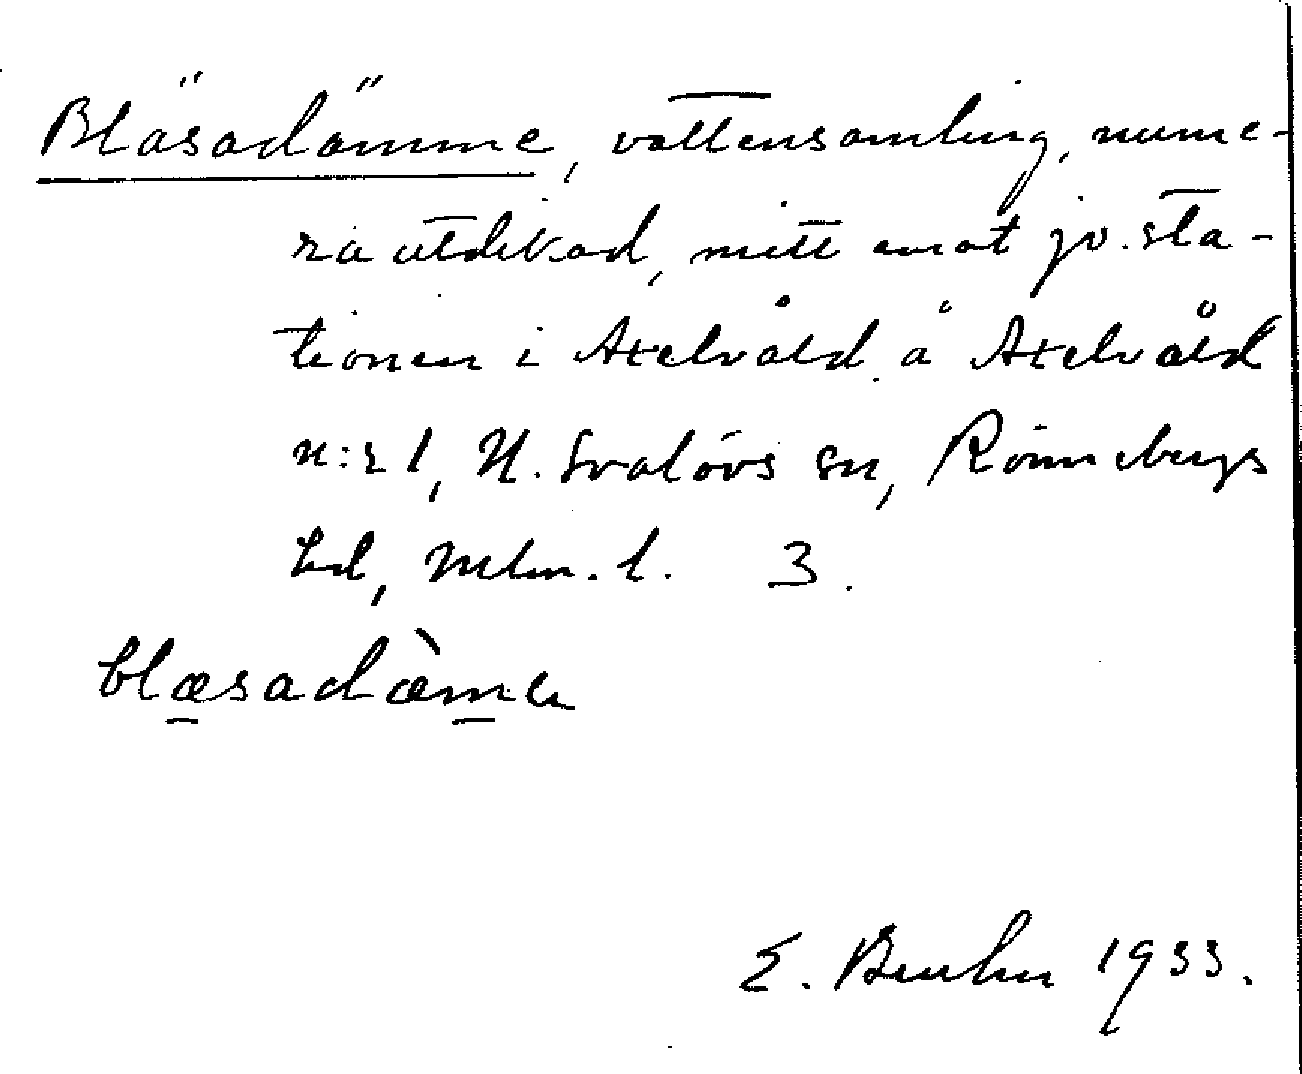 Bläsadämme, vattensamling, nume-
ra utdikad, mitt emot jv. sta-
tionen i Axelvåld å Axelvåld
n:r 1, N. Svalövs sn, Rönnebergs
hd, Mlm. l. 3.
blæsadæ̀me
E. Bruhn 1933.